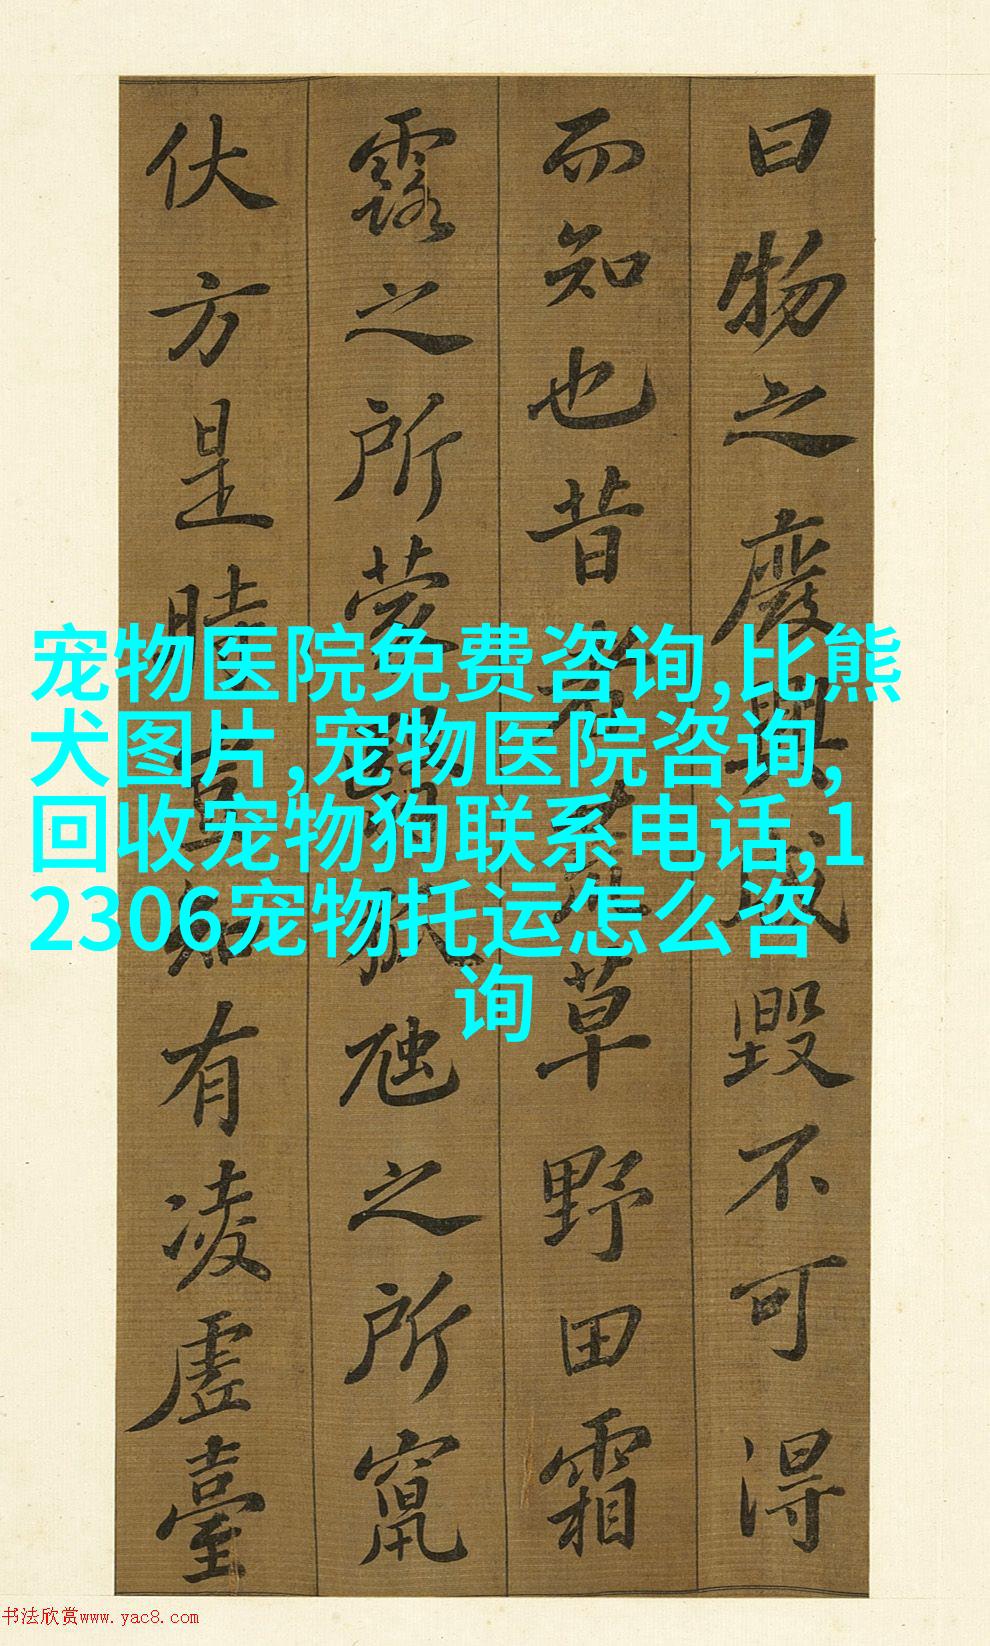 曰物之廢興成毀不可得
而知也昔者荒草野田霜
露之所蒙翳狐虺之所竄
伏方是時豈知有凌虛臺
宠物医院免费咨询,比熊
犬图片,宠物医院咨询,
回收宠物狗联系电话,1
2306宠物托运怎么咨
询
书法欣赏www.yac8.com